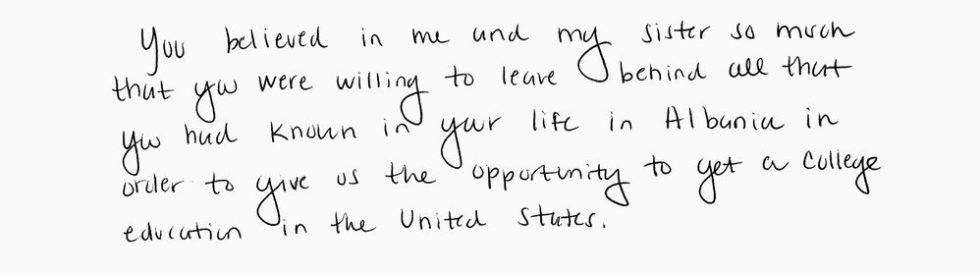 You believed in me and my sister so much
that you were willing to leave behind all that
you had known in your life in Albania in
order to give us the opportunity to get a college
education in the United States.